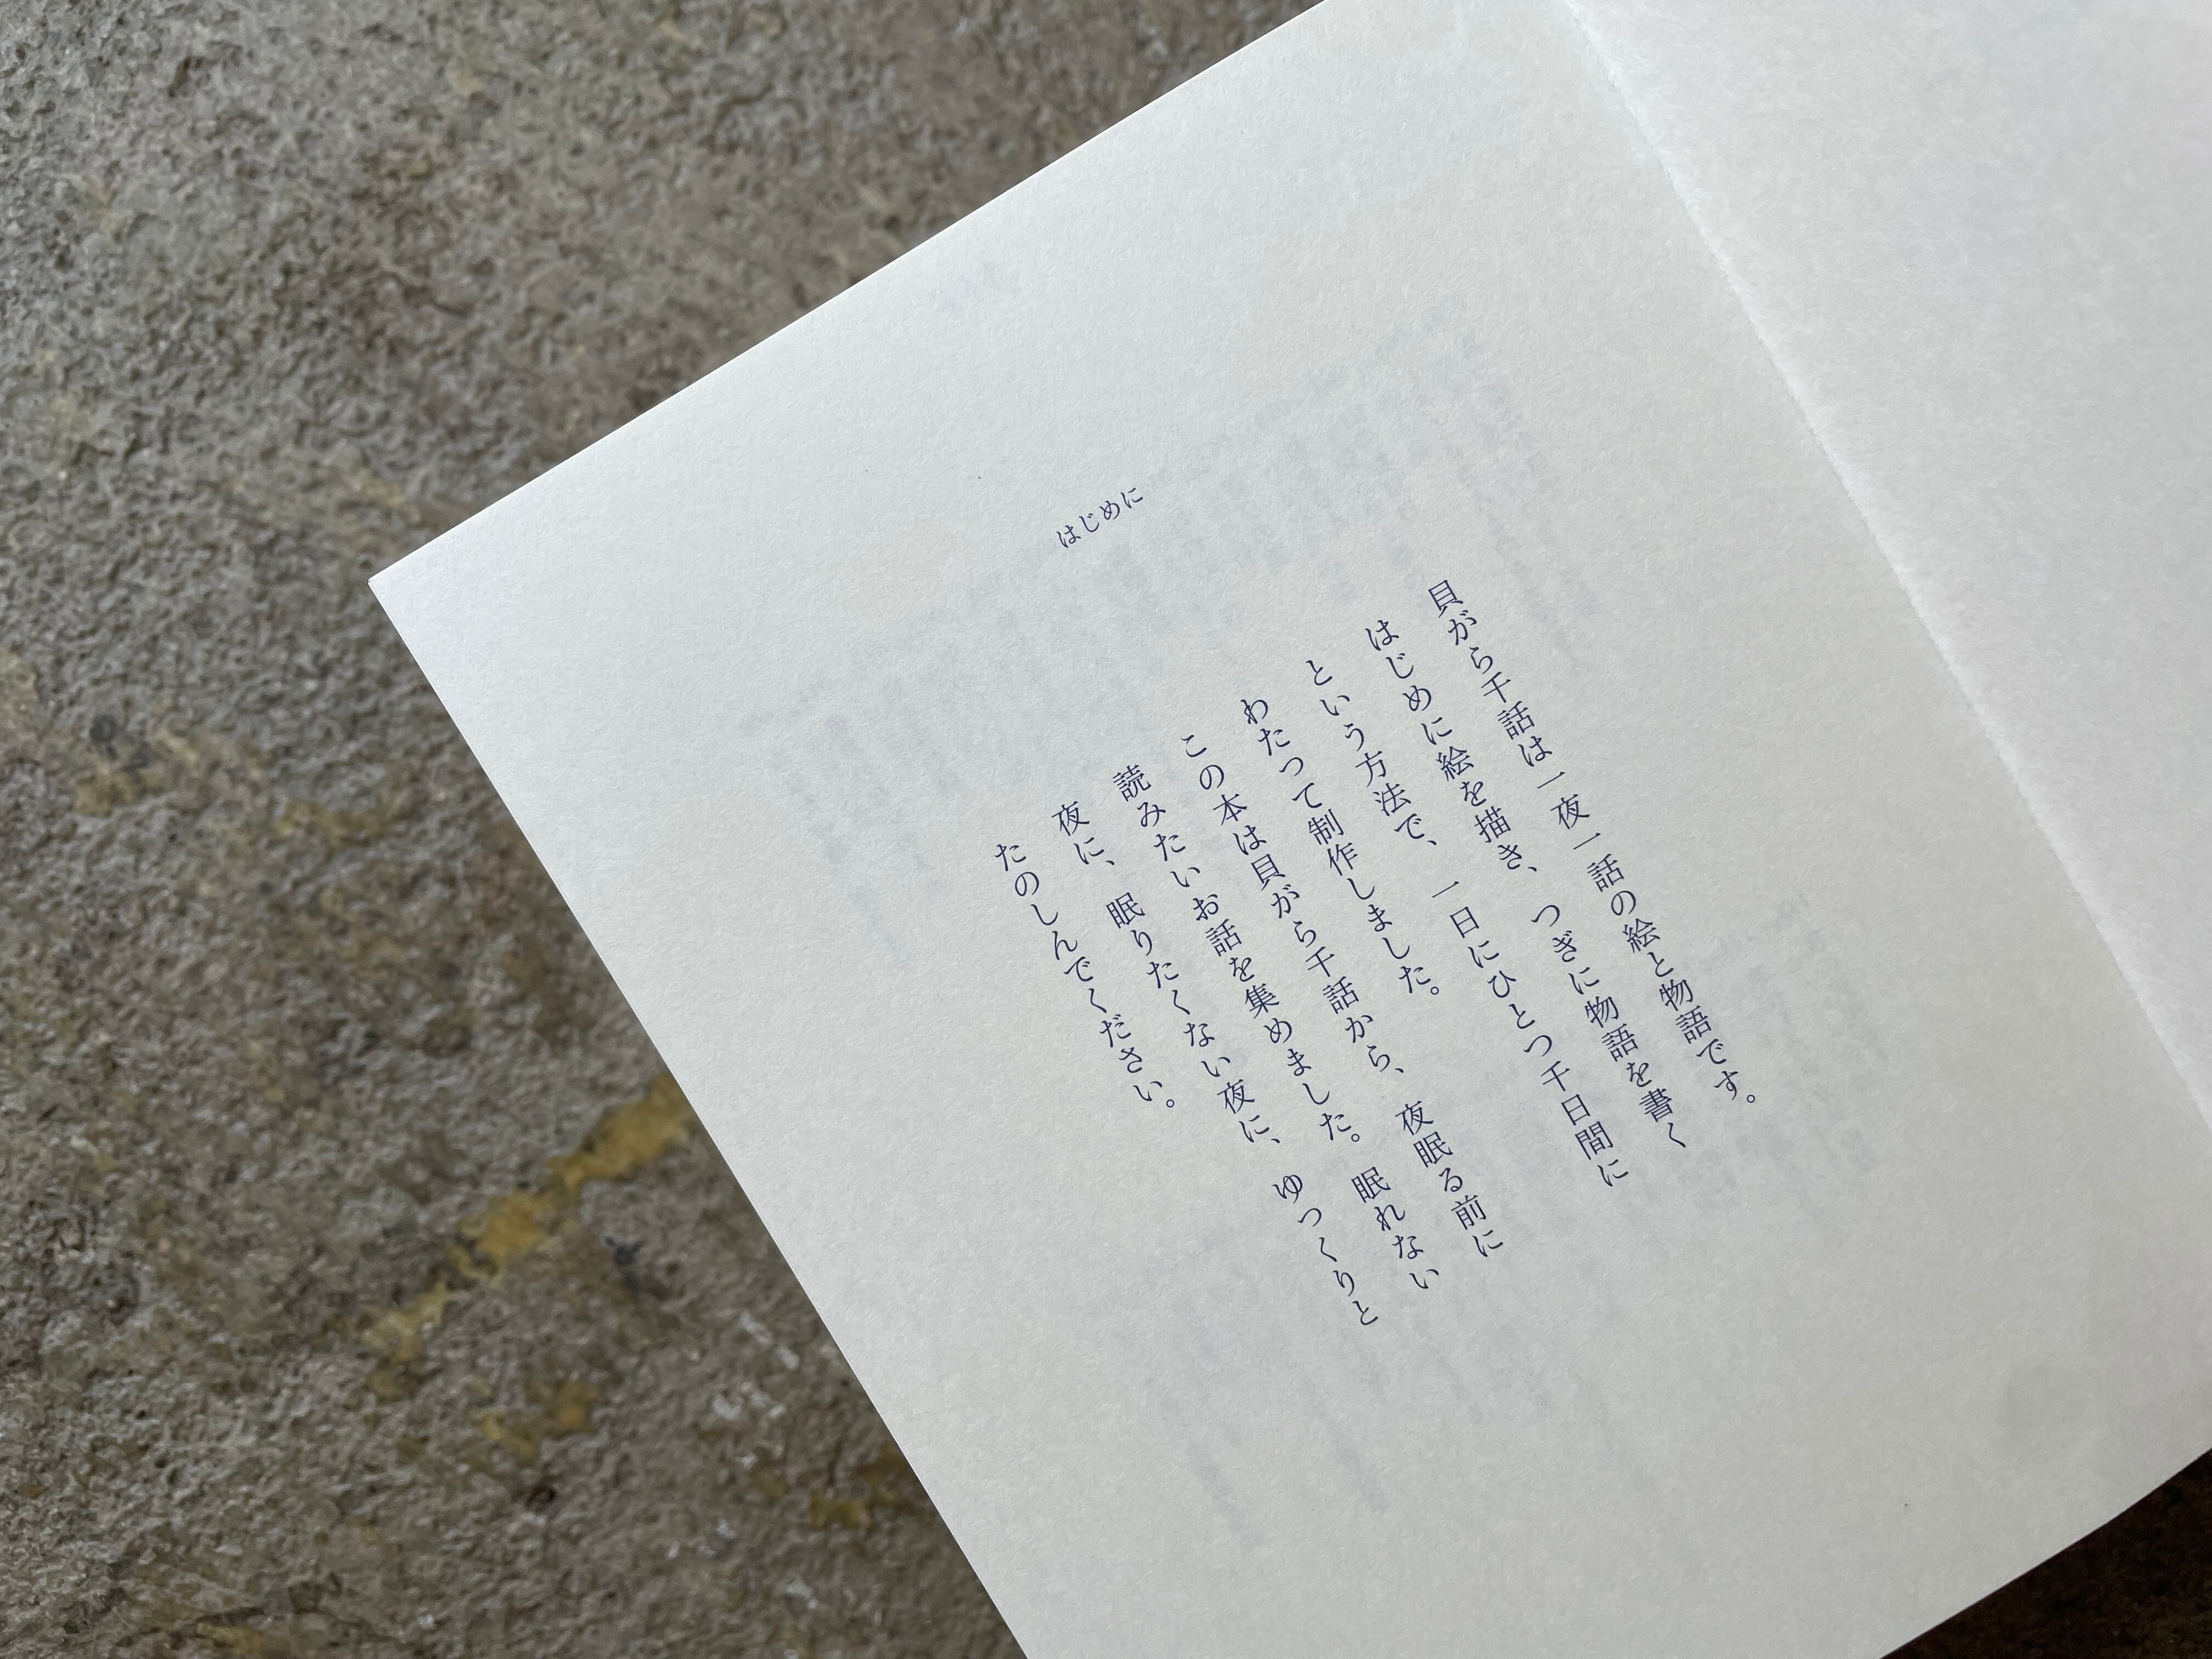 はじめに
貝がら千話は一夜一話の絵と物語です。
はじめに絵を描き、つぎに物語を書く
という方法で、一日にひとつ千日間に
わたって制作しました。
この本は貝がら千話から、夜眠る前に
読みたいお話を集めました。眠れない
夜に、眠りたくない夜に、ゆっくりと
たのしんでください。